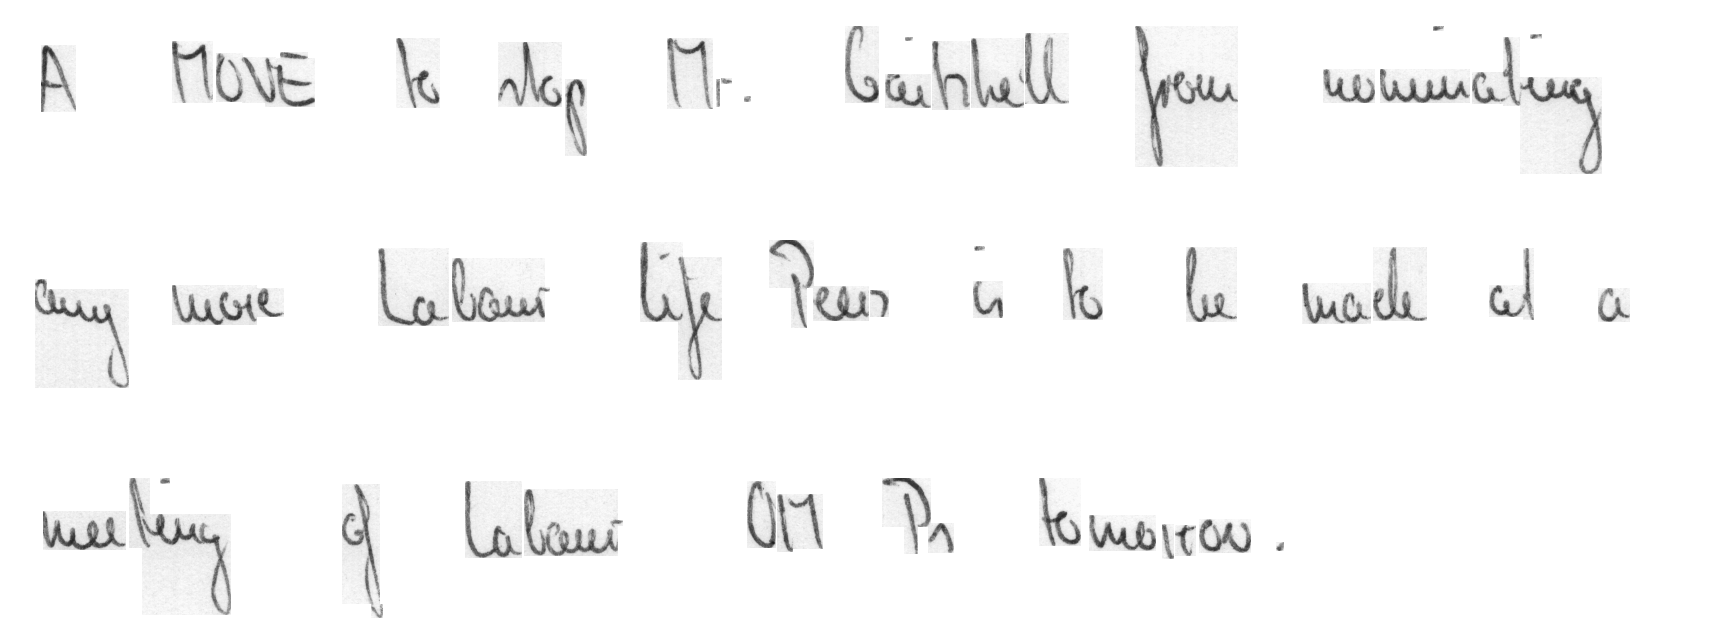 A MOVE to stop Mr. Gaitskell from nominating
any more Labour life Peers is to be made at a
meeting of Labour OM Ps tomorrow.